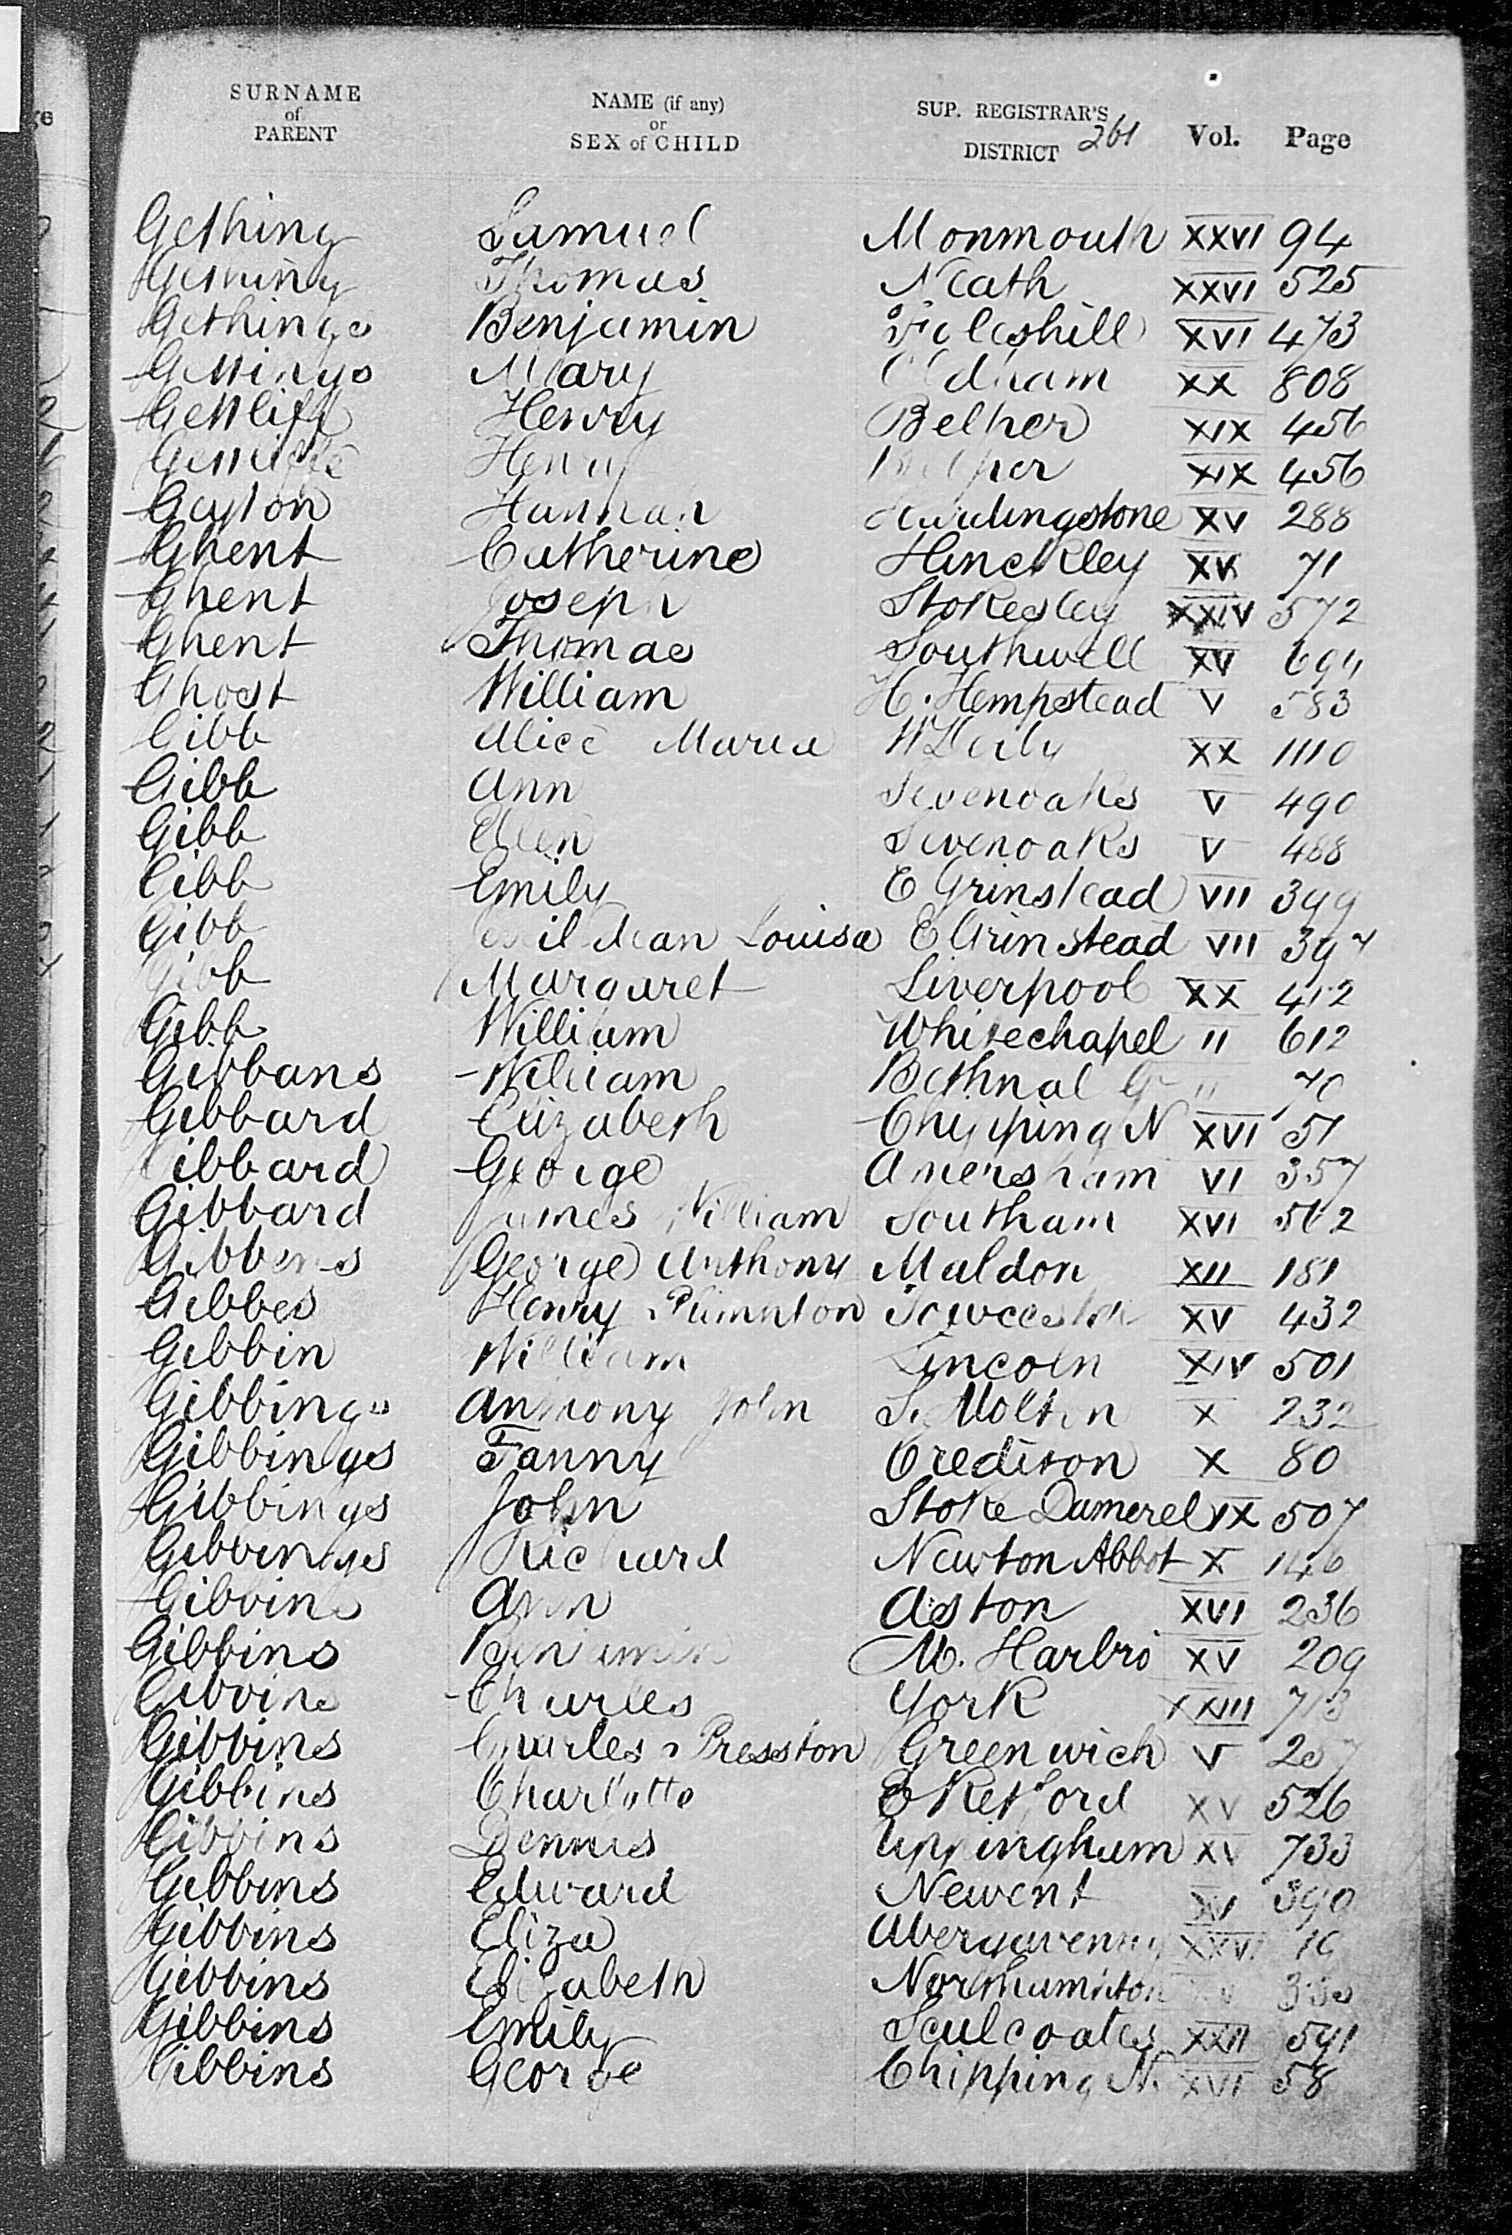 SURNAME of PARENT NAME (if any) or SEX of CHILD SUP. REGISTRAR'S DISTRICT 261 Vol. Page
Gething Samuel Monmouth XXVI 94
Gething Thomas Neath XXVI 525
Gethings Benjamin Foleshill XVI 473
Gettings Mary Oldham XX 808
Gettliff Henry Belper XIX 456
Henry Belper XIX 456
Gayton Hannah Hardingstone XV 288
Ghent Catherine Hinckley XV 71
Ghent Joseph Stokesley XXIV 572
Ghent Thomas Southwell XV
Ghost William H. Hempstead V 583
Gibb Alice Maria W Derby XX 1110
Gibb Ann Sevenoaks V 490
Gibb Ellen Sevenoaks V 488
Gibb Emily E Grinstead VII 399
Gibb Louisa E Grinstead VII 397
Gibb Margaret Liverpool XX 412
Gibb William Whitechapel II 612
Gibbans William Bethnal G II 70
Gibbard Elizabeth Chipping N XVI 51
Gibbard George Amersham VI 357
Gibbard James William Southam XVI 562
Gibbens George Anthony Maldon XII 181
Gibbes Henry Towcester XV 432
Gibbin William Lincoln XIV 501
Gibbings Anthony John S. Molton X 232
Gibbings Fanny Crediton X 80
Gibbings John Stoke Damerel IX 507
Gibbings Richard Newton Abbot X 146
Gibbins Ann Aston XVI 236
Gibbins Benjamin M. Harbro XV 209
Gibbins Charles York XXIII 713
Gibbins Charles Presston Greenwich V 257
Gibbins Charlotte E Retford XV 526
Gibbins Dennis Uppingham XV 733
Gibbins Edward Newent XI 390
Gibbins Eliza Abergavenny XXVI
Gibbins Elizabeth Northampton
Gibbins Emily Sculcoates XXII 591
Gibbins George Chipping N. XVI 58